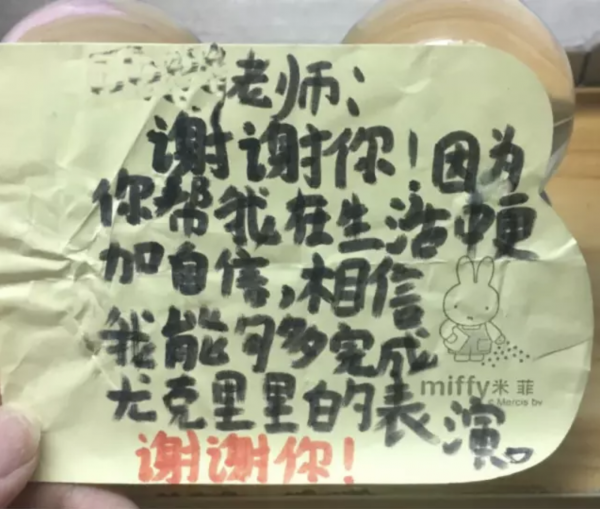 老师：
谢谢你！因为
你帮我在生活中更
加自信，相信
我能够多完成
尤克里里白的表演。
谢谢你！
miffy 米菲
© Mercis bv